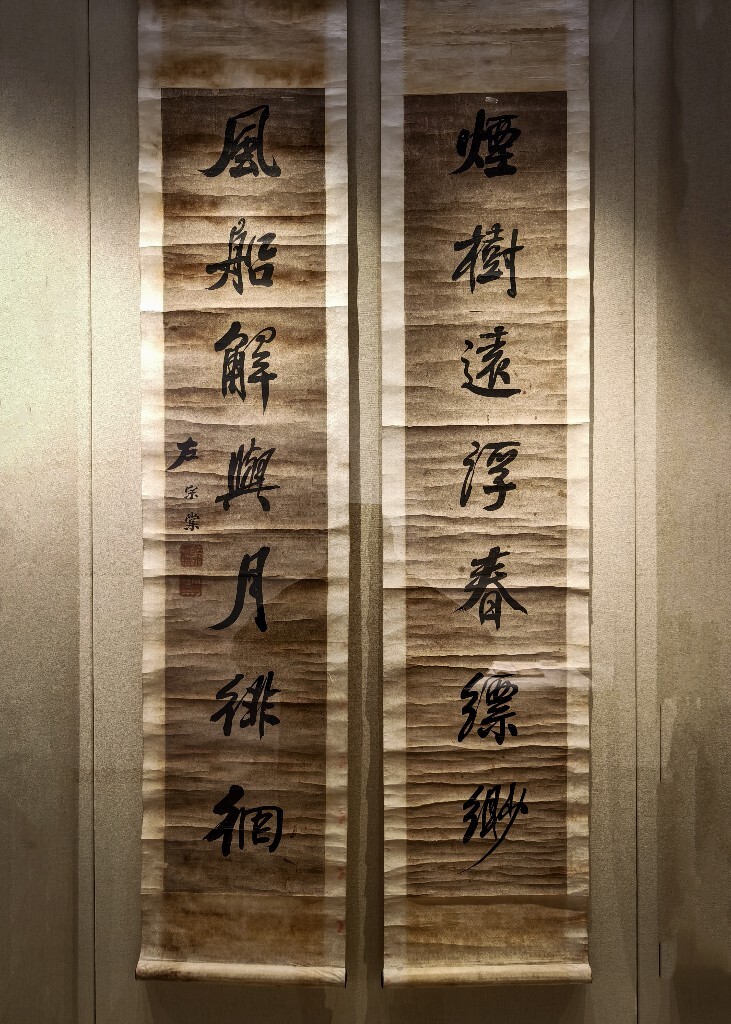 煙樹遠浮春縹緲
風船解與月徘徊
左宗棠